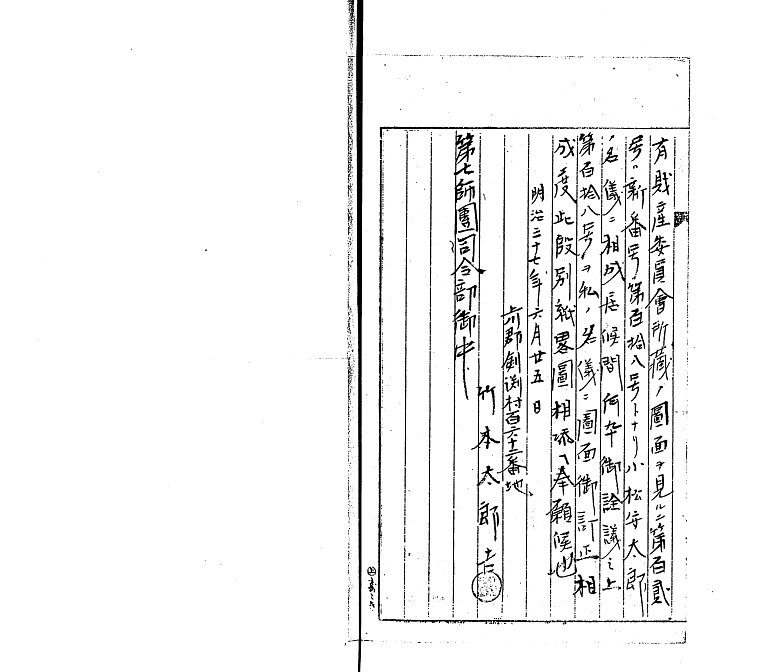 有財産委員會所蔵ノ圖面ヲ見ルニ第百貳
号ハ新番号第百拾八号トナリ小松安太郎
ノ名儀ニ相成居候間何卒御詮議之上
第百拾八号ヲ私ノ名儀ニ圖面御訂正相
成度此段別紙畧圖相添ヘ奉願候也
明治三十七年六月廿五日
上川郡剣渕村百六十三番地
竹本太郎吉
第七師團司令部御中